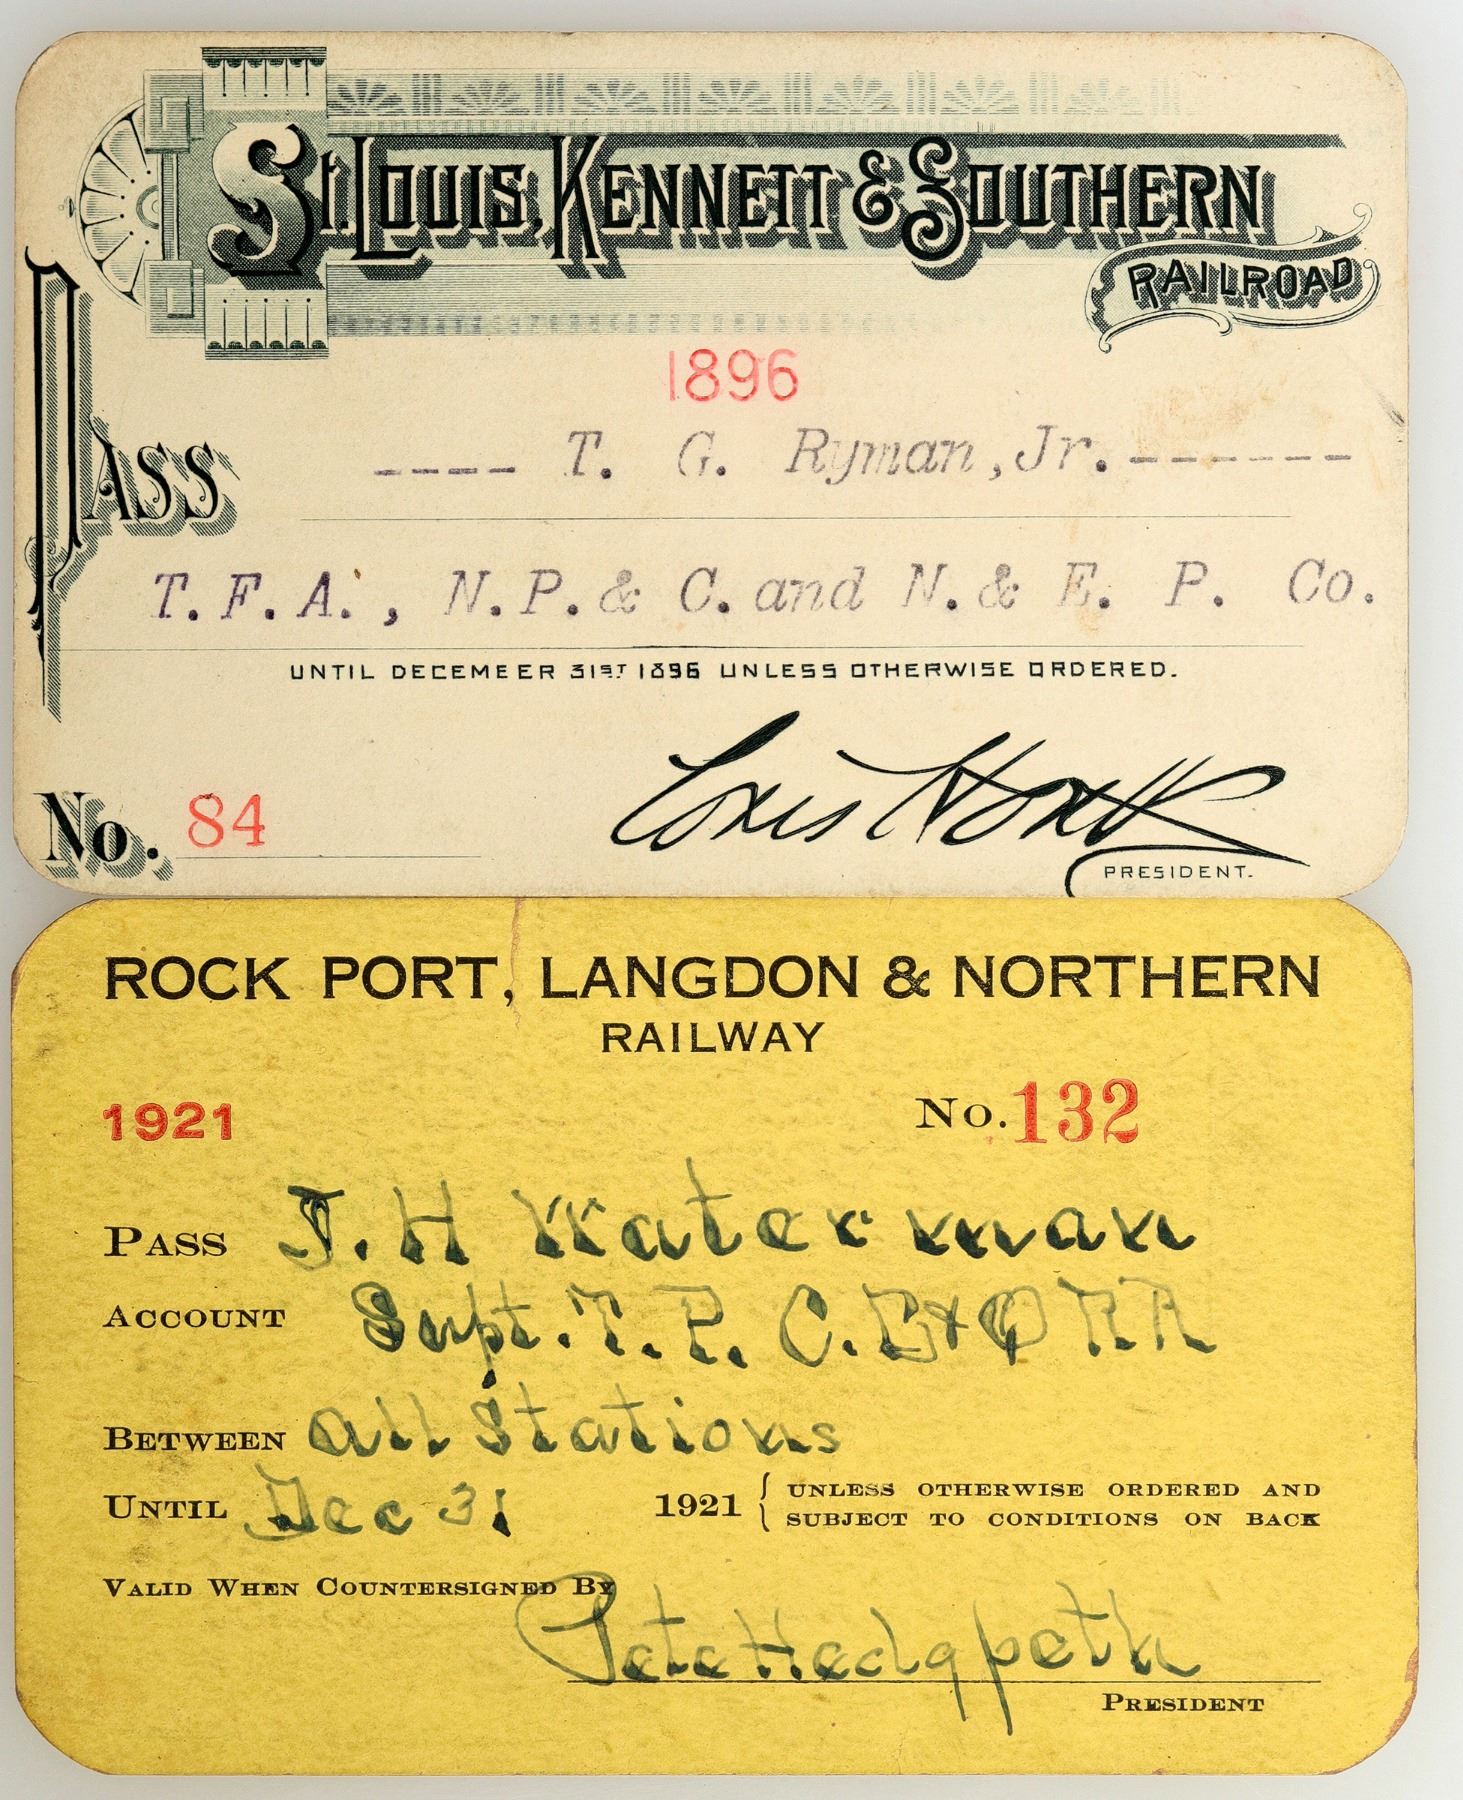 ST. LOUIS, KENNETT & SOUTHERN
RAILROAD
1896
PASS ---- T. G. Ryman, Jr. ------
T. F. A. , N. P. & C. and N. & E. P. Co.
UNTIL DECEMBER 31ST 1896 UNLESS OTHERWISE ORDERED.
Louis Houck
No. 84
PRESIDENT.
ROCK PORT, LANGDON & NORTHERN
RAILWAY
1921 No. 132
PASS J. H Waterman
ACCOUNT Supt. T. P. C. B & Q RR
BETWEEN all Stations
UNTIL Dec 31 1921 { UNLESS OTHERWISE ORDERED AND
SUBJECT TO CONDITIONS ON BACK
VALID WHEN COUNTERSIGNED BY
Pete Hedgpeth
PRESIDENT